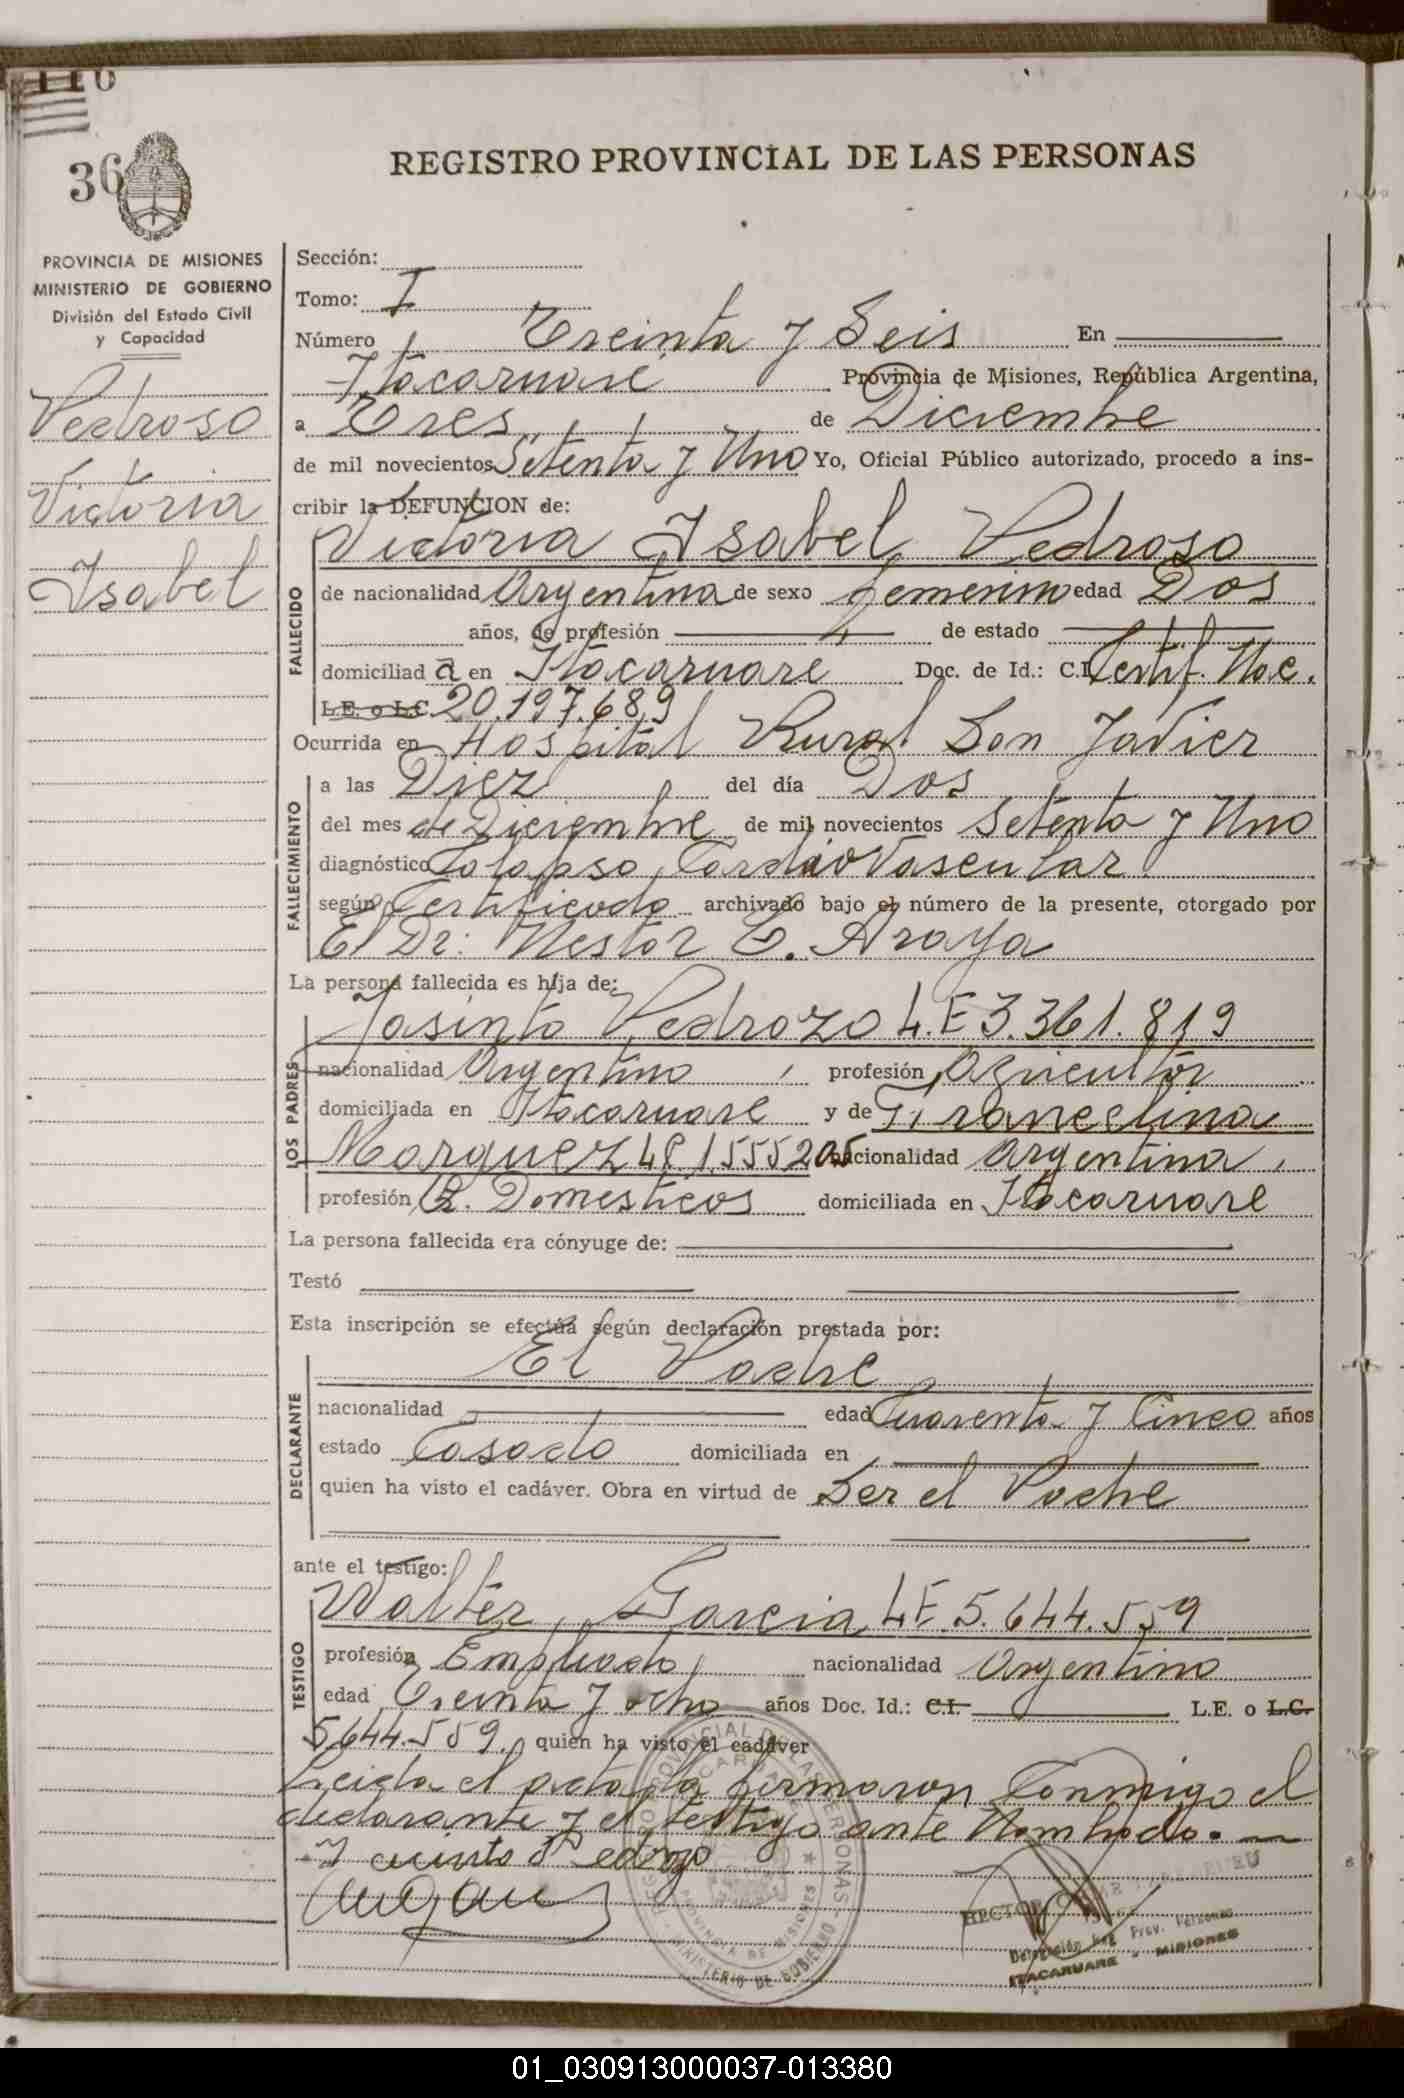 116
36
REGISTRO PROVINCIAL DE LAS PERSONAS
PROVINCIA DE MISIONES
MINISTERIO DE GOBIERNO
División del Estado Civil
y Capacidad
Pedroso
Victoria
Isabel
Sección:
Tomo: I
Número Treinta y Seis En
Itacaruaré Provincia de Misiones, República Argentina,
a Tres de Diciembre
de mil novecientos Setenta y Uno Yo, Oficial Público autorizado, procedo a ins-
cribir la DEFUNCION de:
Victoria Isabel Pedroso
FALLECIDO
de nacionalidad Argentina de sexo femenino edad Dos
años, de profesión de estado
domiciliad a en Itacaruaré Doc. de Id.: C.I. Certif. Nac.
L.E. o L.C. 20.197.689
Ocurrida en Hospital Rural San Javier
FALLECIMIENTO
a las Diez del día Dos
del mes de Diciembre de mil novecientos Setenta y Uno
diagnóstico Colapso Cardiovascular
según Certificado archivado bajo el número de la presente, otorgado por
El Dr: Nestor E. Araya
La persona fallecida es hija de:
LOS PADRES
Jasinto Pedrozo L.E 3.361.819
nacionalidad Argentino, profesión Agricultor
domiciliada en Itacaruaré y de Francelina
Marquez LC 1.555205 nacionalidad Argentina,
profesión Q. Domesticos domiciliada en Itacaruaré
La persona fallecida era cónyuge de:
Testó
Esta inscripción se efectúa según declaración prestada por:
DECLARANTE
El Padre
nacionalidad edad Cuarenta y Cinco años
estado Casado domiciliada en
quien ha visto el cadáver. Obra en virtud de Ser el Padre
ante el testigo:
TESTIGO
Walter Garcia LE 5.644.559
profesión Empleado nacionalidad Argentino
edad Treinta y ocho años Doc. Id.: C.I. L.E. o L.C.
5644.559. quien ha visto el cadáver
Leida el acta la firmaron Conmigo el
declarante y el testigo ante Nombrado.
Jacinto Pedrozo
HECTOR
Delegación Reg. Prov. Personas
ITACARUARE - MISIONES
REGISTRO PROVINCIAL DE LAS PERSONAS
ITACARUARE
PROVINCIA DE MISIONES
MINISTERIO DE GOBIERNO
01_030913000037-013380